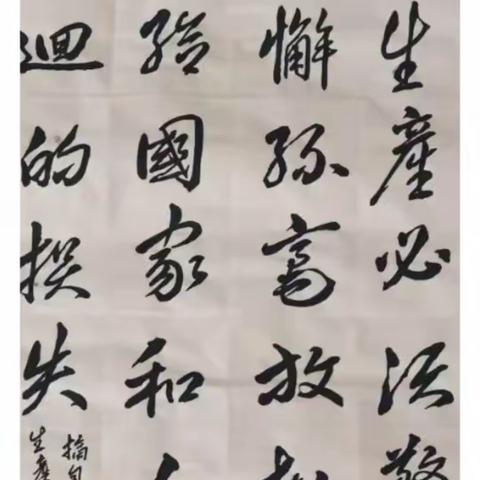 生產必須警
懈絲毫放松
給國家和人
迴的損失
摘自
生產